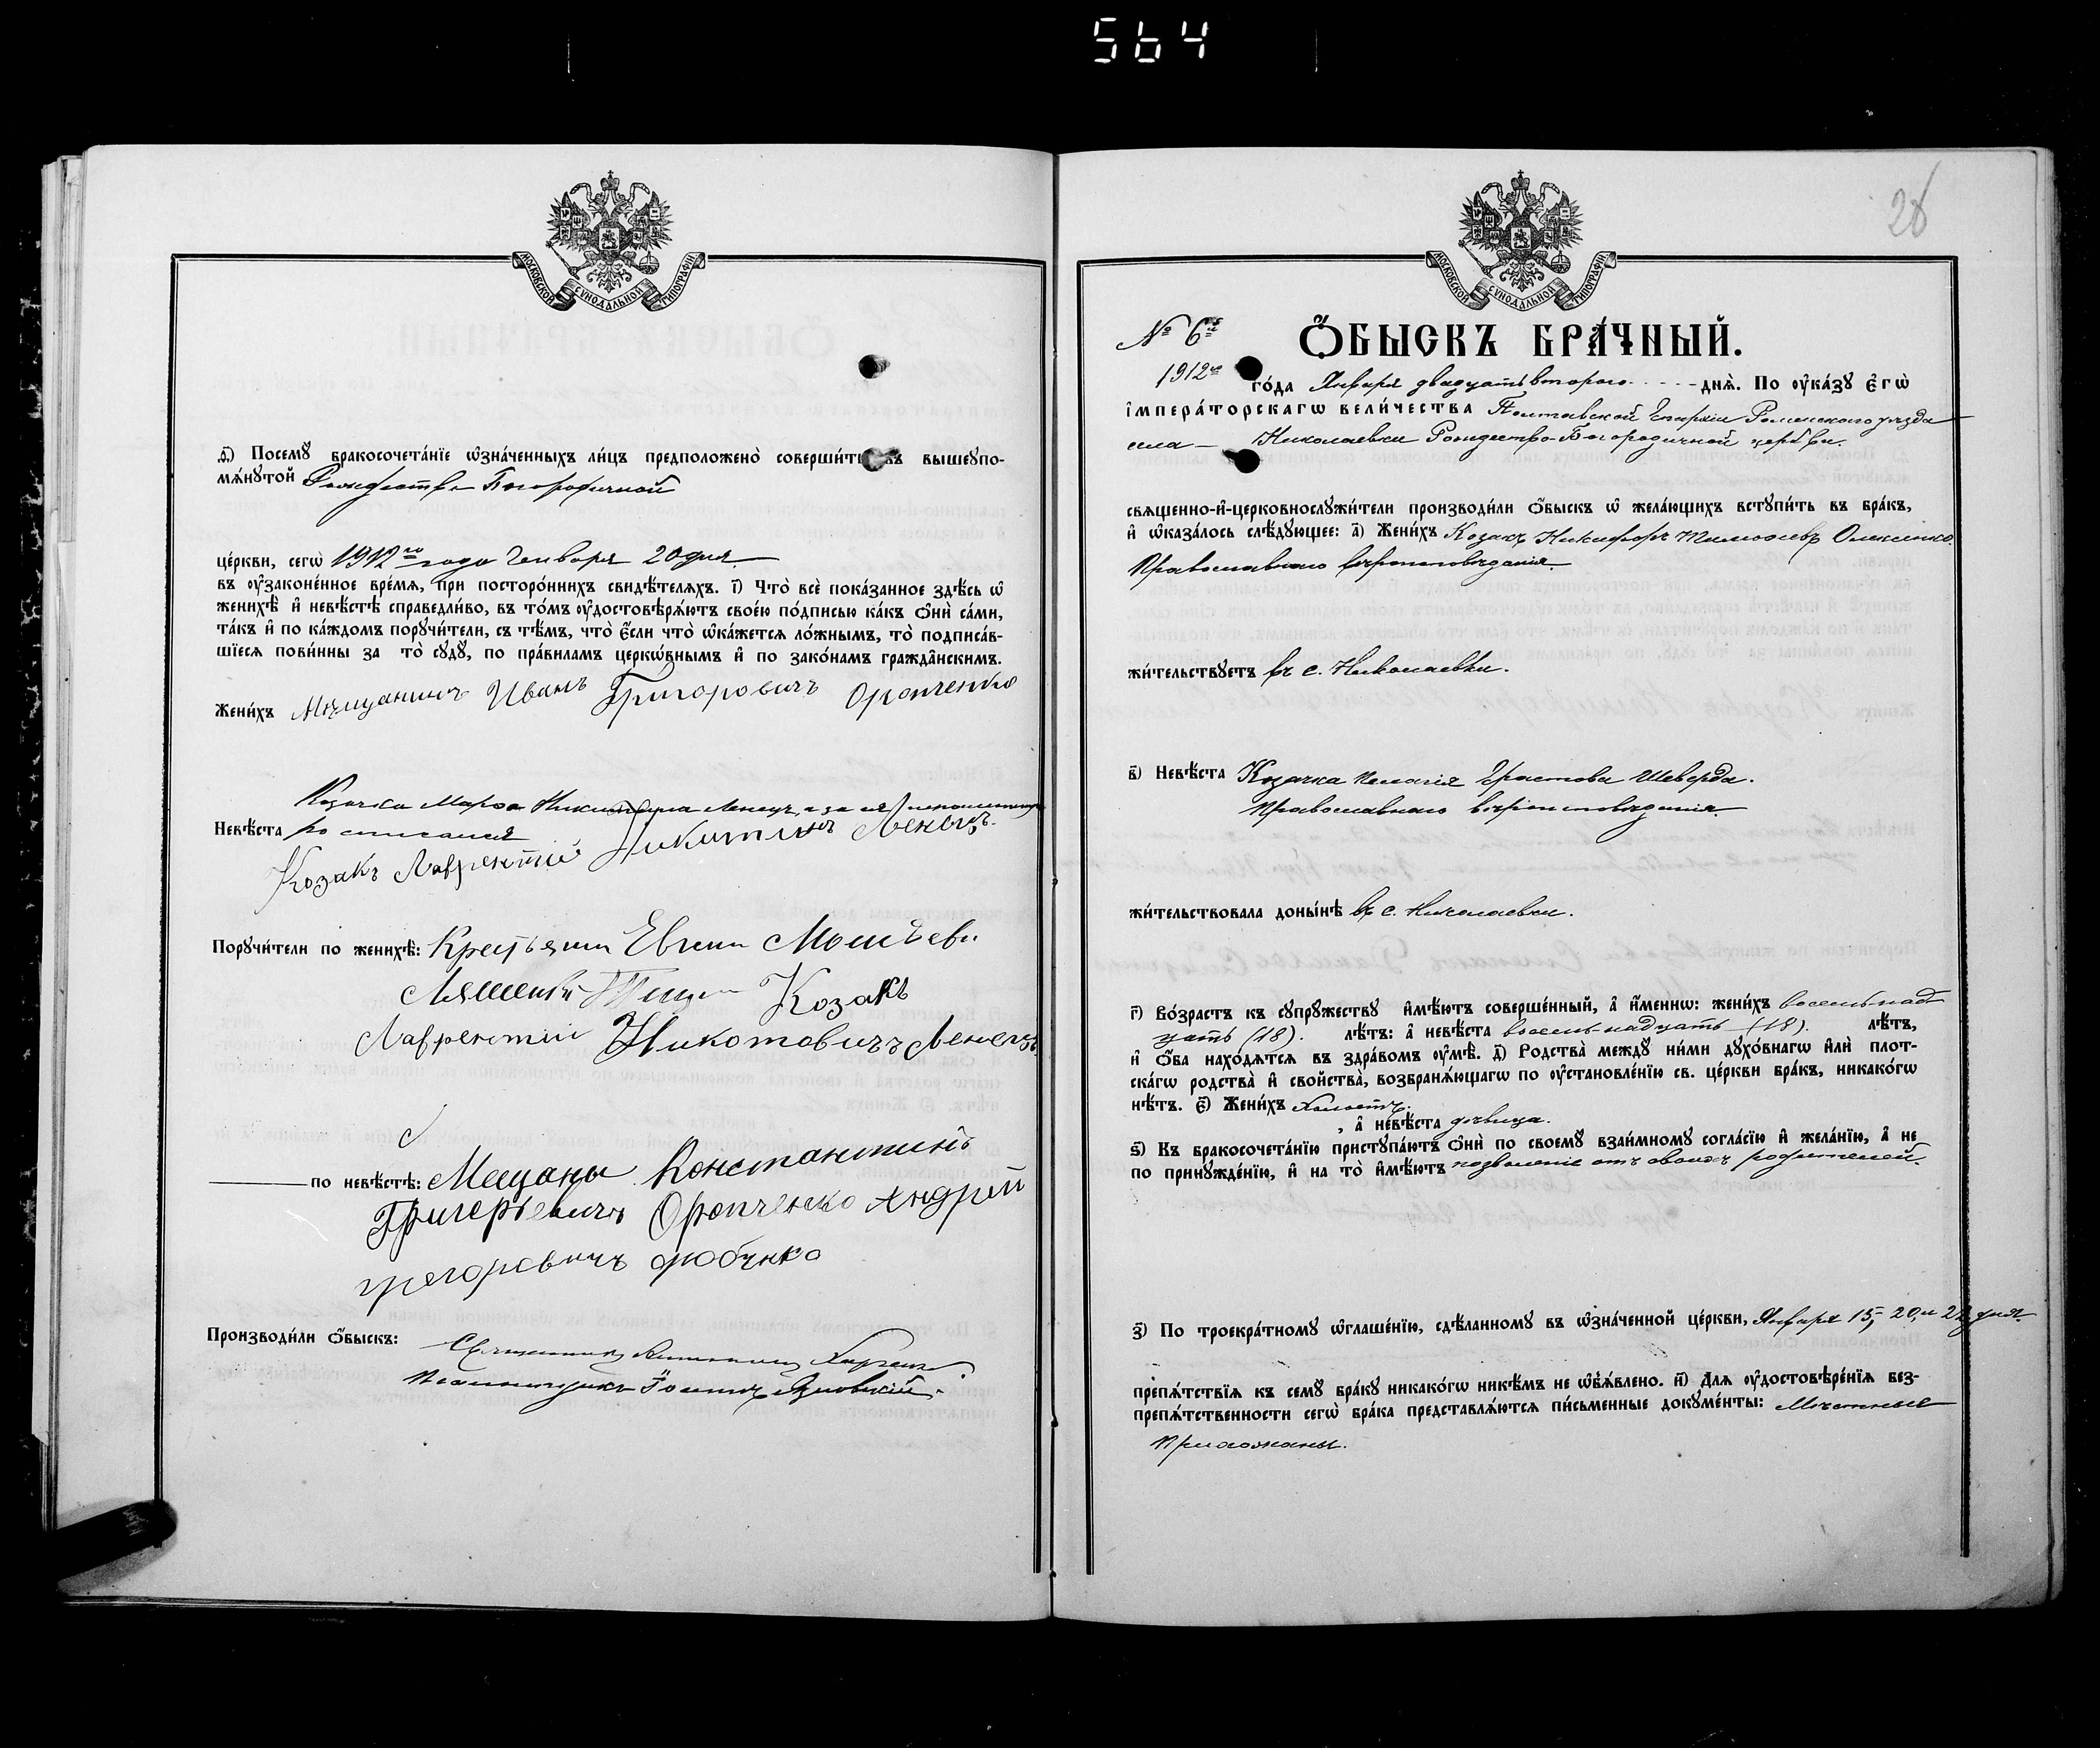 564
МОСКОВСКОЙ СУНОДАЛЬНОЙ ТИПОГРАФІИ
Ѳ҃) Посемꙋ̀ бракосочета́нїе ѡ҆зна́ченныхъ ли́цъ предположено̀ соверши́ть въ вышеꙋпо-
мѧ́нꙋтой Рождество Богородичной
це́ркви, сегѡ̀ 1912го года Генваря 20 дня
въ ᲂу҆законе́нное вре́мѧ, при посторо́ннихъ свидѣ́телѧхъ. І҃) Что̀ всѐ пока́занное здѣ́сь ѡ҆
женихѣ̀ и҆ невѣ́стѣ справедли́во, въ то́мъ ᲂу҆достовѣрѧ́ютъ свое́ю по́дписью ка́къ ѻ҆нѝ са́ми,
та́къ и҆ по ка́ждомъ порꙋчи́тели, съ тѣ́мъ, что̀ є҆́сли что̀ ѡ҆ка́жетсѧ ло́жнымъ, то̀ подписа́в-
шїесѧ пови́нны за то̀ сꙋдꙋ̀, по пра́виламъ церкѡ́внымъ и҆ по зако́намъ гражда̑нскимъ.
Жени́хъ Мѣщанинъ Иванъ Григоровичъ Оропченко
Козачка Марѳа Никитина Ленецъ, а за ея
Невѣ́ста росписался
Козакъ Лаврентій Никитинъ Ленецъ.
Порꙋчи́тели по женихѣ̀:
Козакъ
Лаврентій Никотовичъ Ленецъ
по невѣ́стѣ: Мещаны Константинъ
Григорьевичъ Оропченко Андрей
грегоровичъ
Производи́ли ѻ҆́быскъ: Священникъ
Псаломщикъ
28
МОСКОВСКОЙ СУНОДАЛЬНОЙ ТИПОГРАФІИ
№ 6й Ѻ҆́БЫСКЪ БРА́ЧНЫЙ.
1912го го́да Января двадцать второго дня̀. По ᲂу҆ка́зꙋ Є҆гѡ̀
і҆мпера́торскагѡ вели́чества Полтавской Епархіи Роменского уезда
села Николаевки Рождество-Богородичной церкви.
свѧще́нно-и҆-церковнослꙋжи́тели производи́ли ѻ҆́быскъ ѡ҆ жела́ющихъ встꙋпи́ть въ бра́къ,
и҆ ѡ҆каза́лось слѣ́дꙋющее: а҃) Жени́хъ Козакъ Никифоръ Тимоѳеевъ Олексенко
Православнаго вѣроисповѣданія.
жи́тельствꙋетъ въ с. Николаевки.
в҃) Невѣ́ста Козачка Пелагія Ерастова Шеверда.
Православнаго вѣроисповѣданія.
жи́тельствовала доны́нѣ въ с. Николаевки.
г҃) Во́зрастъ къ сꙋпрꙋ́жествꙋ и҆мѣ́ютъ соверше́нный, а҆ и҆́меннѡ: жени́хъ восемьнад
цать (18). лѣ́тъ: а҆ невѣ́ста восемьнадцать (18). лѣ́тъ,
и҆ ѻ҆́ба нахо́дѧтсѧ въ здра́вомъ ᲂу҆мѣ̀. д҃) Родства̀ междꙋ̀ ни́ми дꙋхо́внагѡ и҆лѝ плот-
ска́гѡ родства̀ и҆ сво́йства, возбранѧ́ющагѡ по ᲂу҆становле́нїю св. це́ркви бра́къ, никако́гѡ
нѣ́тъ. є҃) Жени́хъ холостъ.
, а҆ невѣ́ста дѣвица.
ѕ҃) Къ бракосочета́нїю пристꙋпа́ютъ ѻ҆нѝ по своемꙋ̀ взаи́мномꙋ согла́сїю и҆ жела́нїю, а҆ не
по принꙋжде́нїю, и҆ на то̀ и҆мѣ́ютъ позволеніе отъ своихъ родителей.
з҃) По троекра́тномꙋ ѡ҆глаше́нїю, сдѣ́ланномꙋ въ ѡ҆зна́ченной це́ркви, Января 15, 20, и 22 дня
препѧ́тствїѧ къ семꙋ̀ бра́кꙋ никако́гѡ никѣ́мъ не ѡ҆б̾ѧ́влено. и҃) Длѧ ᲂу҆достовѣре́нїѧ без-
препѧ́тственности сегѡ̀ бра́ка представлѧ́ютсѧ пи́сьменные докꙋме́нты: Мѣстные
прихожаны.